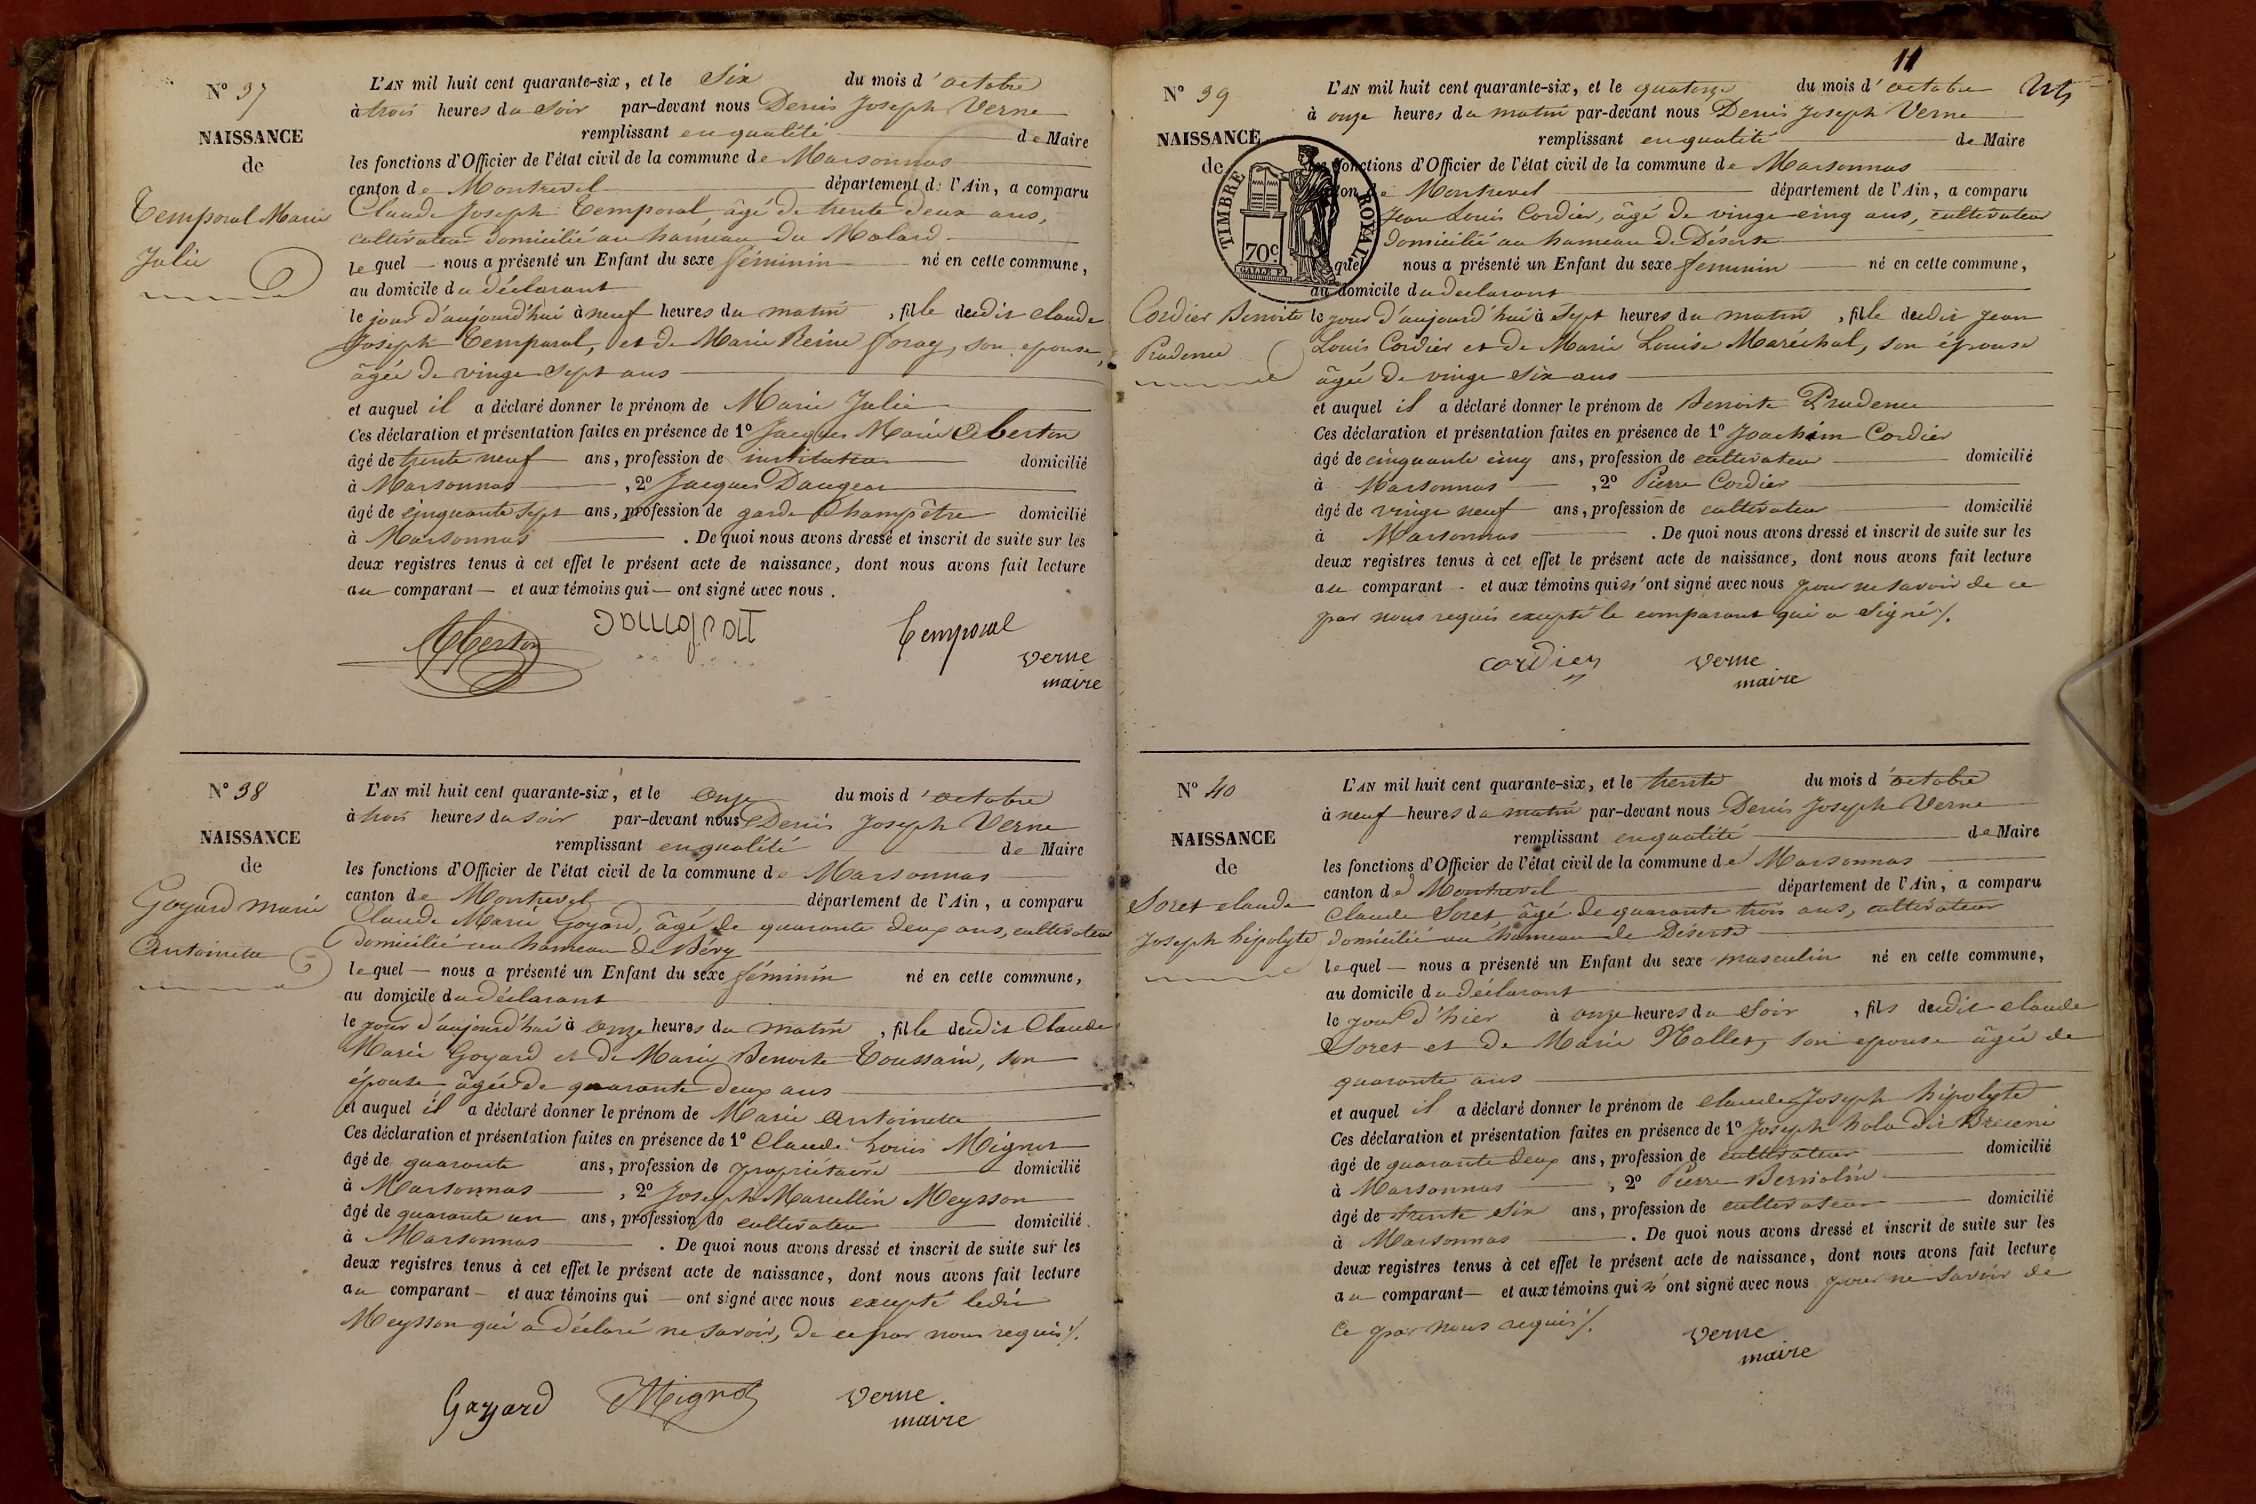 N° 37
NAISSANCE
de
Temporal Marie
Julie
L'AN mil huit cent quarante-six, et le Six du mois d'octobre
à trois heures du Soir par-devant nous Denis Joseph Verne
remplissant en qualité de Maire
les fonctions d'Officier de l'état civil de la commune de Marsonnas
canton de Montrevel département de l'Ain, a comparu
Claude Joseph Temporal, âgé de trente deux ans,
cultivateur domicilié au hameau du Molard
lequel nous a présenté un Enfant du sexe féminin né en cette commune,
au domicile du déclarant
le jour d'aujourd'hui à neuf heures du matin, fille dudit Claude
Joseph Temporal, et de Marie Reine son epouse,
âgée de vingt Sept ans
et auquel il a déclaré donner le prénom de Marie Julie
Ces déclaration et présentation faites en présence de 1° Jacques Marie Oberton
âgé de trente neuf ans, profession de instituteur domicilié
à Marsonnas, 2° Jacques
âgé de cinquante Sept ans, profession de garde Champêtre domicilié
à Marsonnas. De quoi nous avons dressé et inscrit de suite sur les
deux registres tenus à cet effet le présent acte de naissance, dont nous avons fait lecture
au comparant et aux témoins qui ont signé avec nous.
Temporal
verne
maire
N° 38
NAISSANCE
de
Goyard marie
Antoinette
L'AN mil huit cent quarante-six, et le Onze du mois d'octobre
à trois heures du soir par-devant nous Denis Joseph Verne
remplissant en qualité de Maire
les fonctions d'Officier de l'état civil de la commune de Marsonnas
canton de Montrevel département de l'Ain, a comparu
Claude Marie Goyard, âgé de quarante deux ans, cultivateur
domicilié au hameau de Béry
lequel nous a présenté un Enfant du sexe féminin né en cette commune,
au domicile du déclarant
le jour d'aujourd'hui à Onze heures du matin, fille dudit Claude
Marie Goyard et de Marie Benoite Toussain, son
épouse âgée de quarante deux ans
et auquel il a déclaré donner le prénom de Marie Antoinette
Ces déclaration et présentation faites en présence de 1° Claude Louis Mignot
âgé de quarante ans, profession de propriétaire domicilié
à Marsonnas, 2° Joseph Marcellin Meysson
âgé de quarante un ans, profession de cultivateur domicilié
à Marsonnas. De quoi nous avons dressé et inscrit de suite sur les
deux registres tenus à cet effet le présent acte de naissance, dont nous avons fait lecture
au comparant et aux témoins qui ont signé avec nous excepté ledit
Meysson qui a déclaré ne savoir, de ce par nous requis /.
Goyard Mignot verne
maire
11
N° 39
NAISSANCE
de
Cordier Benoite
Prudence
TIMBRE ROYAL
70c
L'AN mil huit cent quarante-six, et le quatorze du mois d'octobre
à onze heures du matin par-devant nous Denis Joseph Verne
remplissant en qualité de Maire
les fonctions d'Officier de l'état civil de la commune de Marsonnas
canton de Montrevel département de l'Ain, a comparu
Jean Louis Cordier, âgé de vingt cinq ans, cultivateur
domicilié au hameau de Déserte
lequel nous a présenté un Enfant du sexe féminin né en cette commune,
au domicile du declarant
le jour d'aujourd'hui à Sept heures du matin, fille dudit Jean
Louis Cordier et de Marie Louise Maréchal, son épouse
âgée de vingt Six ans
et auquel il a déclaré donner le prénom de Benoite Prudence
Ces déclaration et présentation faites en présence de 1° Joachim Cordier
âgé de cinquante cinq ans, profession de cultivateur domicilié
à Marsonnas, 2° Pierre Cordier
âgé de vingt neuf ans, profession de cultivateur domicilié
à Marsonnas. De quoi nous avons dressé et inscrit de suite sur les
deux registres tenus à cet effet le présent acte de naissance, dont nous avons fait lecture
au comparant et aux témoins qui n'ont signé avec nous pour ne savoir de ce
par nous requis excepté le comparant qui a Signé /.
cordier verne
maire
N° 40
NAISSANCE
de
Soret claude
Joseph hipolyte
L'AN mil huit cent quarante-six, et le trente du mois d'octobre
à neuf heures du matin par-devant nous Denis Joseph Verne
remplissant en qualité de Maire
les fonctions d'Officier de l'état civil de la commune de Marsonnas
canton de Montrevel département de l'Ain, a comparu
Claude Soret, âgé de quarante trois ans, cultivateur
domicilié au hameau de Déserte
lequel nous a présenté un Enfant du sexe masculin né en cette commune,
au domicile du déclarant
le jour d'hier à onze heures du Soir, fils dudit claude
Soret et de Marie son epouse âgée de
quarante ans
et auquel il a déclaré donner le prénom de claude Joseph hipolyte
Ces déclaration et présentation faites en présence de 1° Joseph
âgé de quarante deux ans, profession de cultivateur domicilié
à Marsonnas, 2° Pierre
âgé de trente Six ans, profession de cultivateur domicilié
à Marsonnas. De quoi nous avons dressé et inscrit de suite sur les
deux registres tenus à cet effet le présent acte de naissance, dont nous avons fait lecture
au comparant et aux témoins qui n'ont signé avec nous pour ne savoir de
ce par nous requis /.
verne
maire